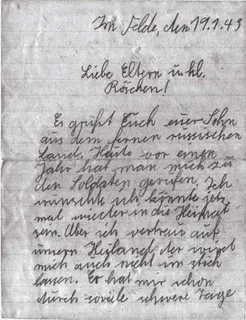 Im Felde, den 19.1.43
Liebe Eltern u. kl.
Röschen!
Es grüßt Euch euer Sohn
aus dem fernen russischen
Land. Heute vor einem
Jahr hat man mich zu
den Soldaten gerufen. Ich
wünschte ich könnte jetz
mal wieder in die Heimat
sen. Aber ich vertraue auf
unsern Heiland, der wird
mich auch nicht im stich
lassen. Er hat mir schon
durch soviele schwere Tage